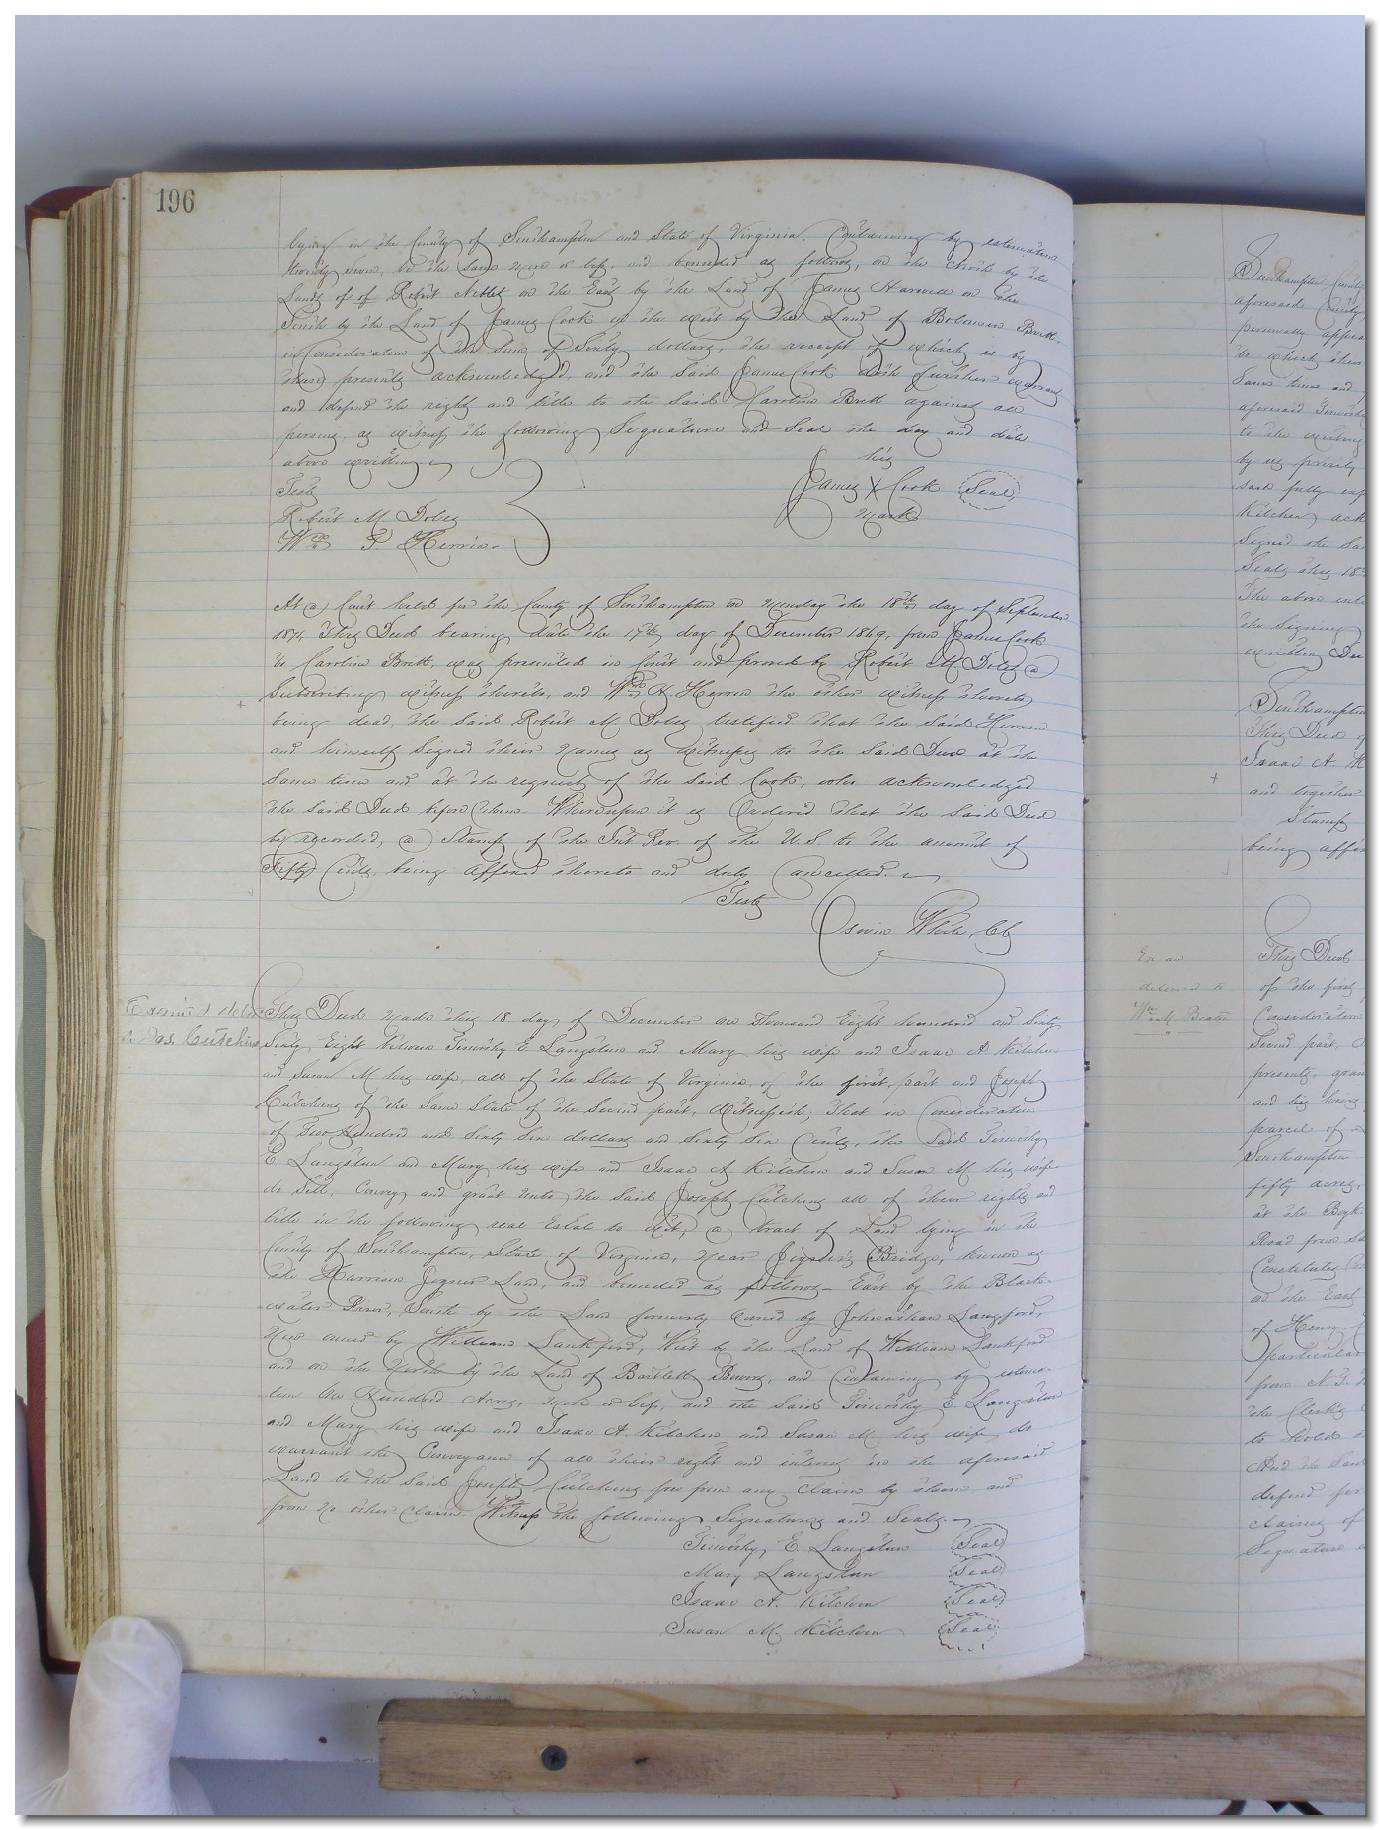 196
lying in the County of Southampton and State of Virginia. Containing by estimation
twenty seven, be the same more or less, and bounded as follows, on the North by the
Lands of of Robert Niblet on the East by the Land of James Harvell on the
South by the Land of James Cook on the West by the Land of Bolivar Britt.
in Consideration of the Sum of Sixty dollars, the receipt of which is by
these presents acknowledged, and the said James Cook doth further warrant
and defend the right and title to the said Caroline Britt against all
persons, as witness the following Signature and Seal the day and date
above written.
his
Teste
James X Cook Seal
mark
Robert M. Doles
Wm
At a Court held for the County of Southampton on Monday the 18th day of September
1871, This Deed bearing date the 17th day of December 1869, from James Cook
to Caroline Britt, was presented in Court and proved by Robert M. Doles a
Subscribing witness thereto, and Wm H. Herrin the other witness thereto
being dead, the said Robert M Doles testified that the said Herrin
and himself Signed their names as witnesses to the said Deed at the
same time and at the request of the said Cook, who acknowledged
the said Deed before them. Whereupon it is Ordered that the said Deed
be recorded, a Stamp of the Int. Rev. of the U.S. to the amount of
Fifty Cents, being affixed thereto and duly Cancelled.
Teste
White, Clk
Examined &
Jos. Cutchins
This Deed made this 18 day of December one thousand Eight hundred and Sixty
Sixty Eight between Timothy E Langston and Mary his wife and Isaac A. Kitchen
and Susan M his wife, all of the State of Virginia, of the first part and Joseph
Cutchins of the same State of the Second part, Witnesseth, that in Consideration
of Two Hundred and Sixty Six dollars and Sixty Six Cents, the said Timothy
E. Langston and Mary his wife and Isaac A Kitchen and Susan M. his wife
do Sell, Convey and grant unto the said Joseph Cutchins all of their rights and
title in the following real Estate to wit, a tract of Land lying in the
County of Southampton, State of Virginia, near Joyner's Bridge, known as
the Harrison Joyner Land, and bounded as follows East by the Black-
water River, South by the Land formerly owned by Johnathan Langford,
now owned by William Lankford, West by the Land of William Lankford
and on the North by the Land of Bartlett Bowers, and Containing by estima-
tion One Hundred Acres, more or less, and the said Timothy E. Langston
and Mary his wife and Isaac A. Kitchen and Susan M. his wife do
warrant the Conveyance of all their right and interest in the aforesaid
Land to the said Joseph Cutchins free from any claim by them and
from no other claim. Witness the following Signatures and Seals.
Timothy E Langston Seal
Mary Langston Seal
Isaac A. Kitchen Seal
Susan M. Kitchen Seal
Southampton County
aforesaid County
personally appea
to which their
Same time and
aforesaid Timothy
to the writing
by us privily
said fully exp
Kitchen ack
Signed the sa
Seals this 18
The above inte
the signing
written Dee
Southampton
This Deed of
Isaac A.
and together
Stamp
being affix
Ex and
delivered to
Wm M. Beaton
This Deed
of the first
Consideration
Second part,
presents, gran
and his heirs
parcel of
Southampton
fifty acres,
at the Boyk
Road from
Constitutes
on the East
of Henry
particular
from
the Clerks
to hold
And the said
defend for
claims of
Signature